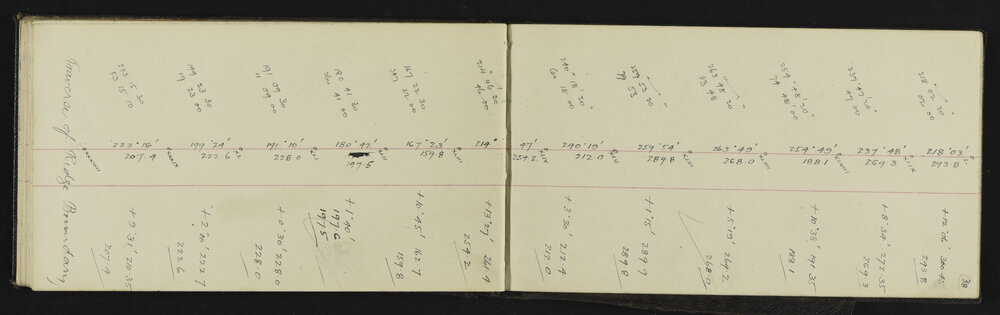 Traverse of Ridge Boundary
38
233 15 30
53 15 10
199 23 30
19 23 00
191 09 30
11 09 00
180 41 30
360 41 00
167 22 30
347 22 00
214 46 30
46 00
240° 18' 20"
60 18 00
259 53 20
79 53
263 48 20
83 48
254° 48' 20"
74 48 00
237° 47' 20"
57 47 00
218° 02' 20"
02 00
233° 16' 199° 24' 191° 10' 180° 42' 167° 23' 214° 47' 240° 19' 259° 54' 263° 49' 254° 49' 237° 48' 218° 03'
207.4 222.6 228.0 197.5 159.8 254.2 212.0 289.8 268.0 188.1 269.3 293.8
+ 9° 31' 210.35
207.4
+ 2° 00' 222.7
222.6
+ 0° 30' 228.0
228.0
+ 1° 40' 197.6
197.5
+ 10° 45' 162.7
159.8
+ 13° 27' 261.4
254.2
+ 3° 30' 212.4
212.0
+ 1° 15' 289.9
289.8
+ 5° 19' 269.2
268.0
+ 10° 38' 191.35
188.1
+ 8° 34' 272.35
269.3
+ 12° 06' 300.45
293.8